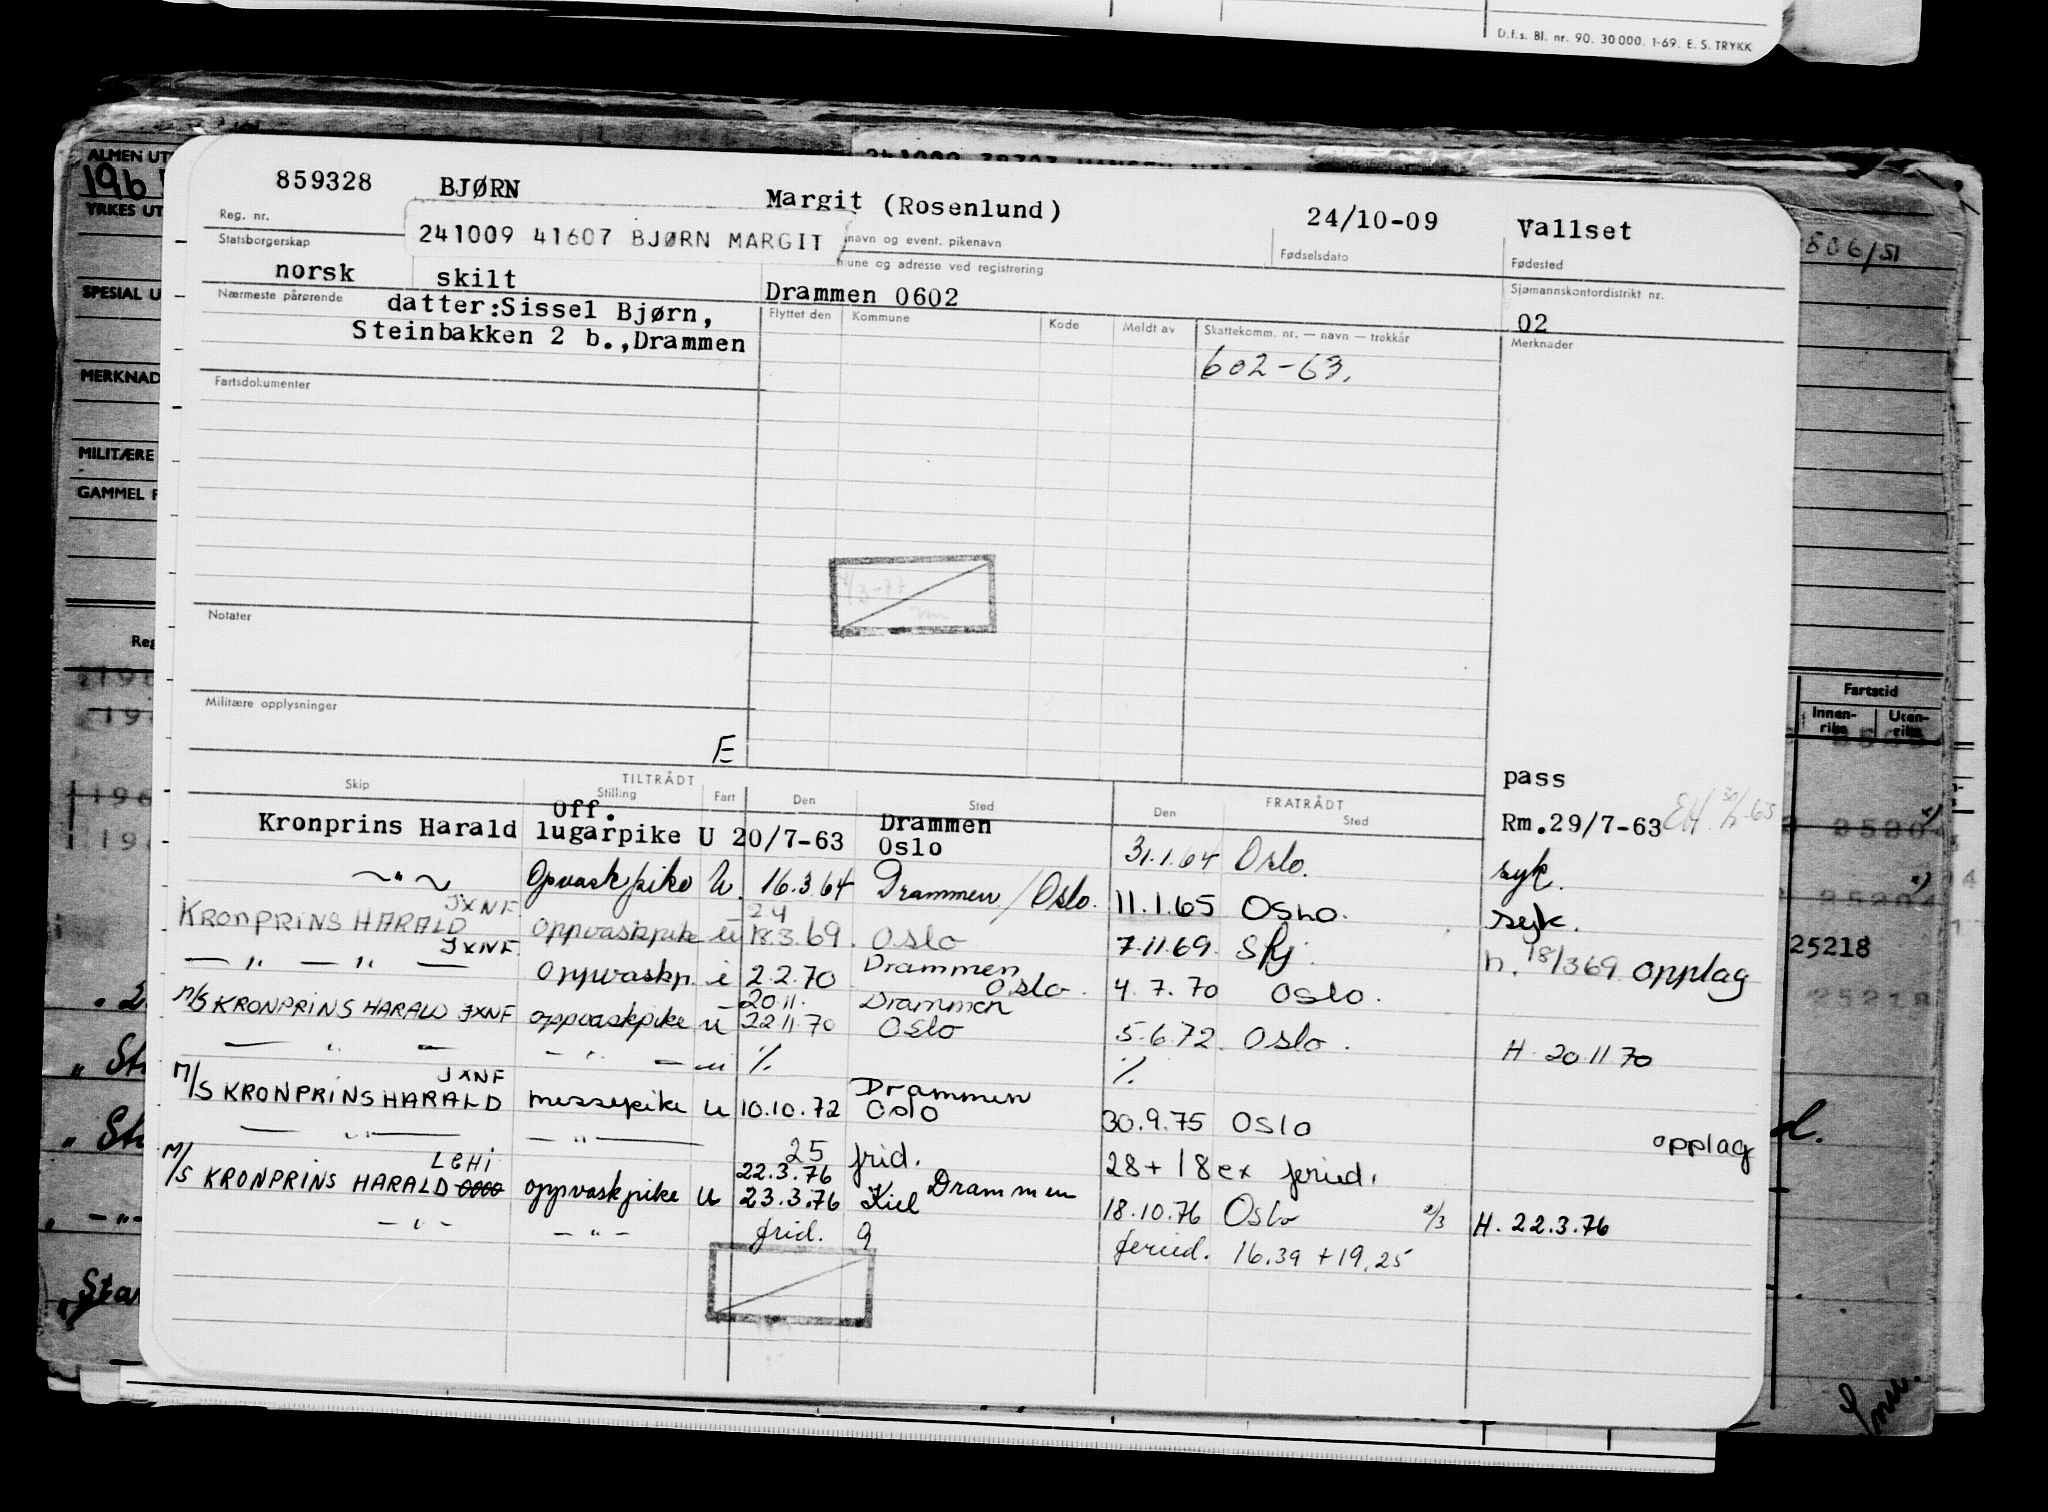 D.f.s. Bl. nr. 90. 30 000. 1-69. E. S. TRYKK
ALMEN UT
YRKES UT
SPESIAL U
MERKNAD
MILITÆRE
GAMMEL F
859328 BJØRN Margit (Rosenlund) 24/10-09 Vallset
Reg. nr. navn og event. pikenavn Fødselsdato Fødested
241009 41607 BJØRN MARGIT
Statsborgerskap mune og adresse ved registrering Sjømannskontordistrikt nr.
norsk skilt Drammen 0602 02
Nærmeste pårørende datter:Sissel Bjørn,
Steinbakken 2 b.,Drammen
Flyttet den Kommune Kode Meldt av Skattekomm. nr. — navn — trekkår Merknader
602-63.
Fartsdokumenter
Notater
Militære opplysninger
E
pass
TILTRÅDT FRATRÅDT
Skip Stilling Fart Den Sted Den Sted
Kronprins Harald Off. lugarpike U 20/7-63 Drammen Oslo 31.1.64 Oslo. Rm.29/7-63
syk.
— " — Opvaskpike U. 16.3.64 Drammen/Oslo. 11.1.65 OSLO. syk.
KRONPRINS HARALD JXNF oppvaskpike u 18.3.69. Oslo 7.11.69. Sfj. h. 18/3 69 opplag
— " — " — JXNF Oppvaskp. i 2.2.70 Drammen Oslo. 4.7.70 Oslo.
M/S KRONPRINS HARALD JXNF oppvaskpike u 20.11. 22.11.70 Drammen Oslo 5.6.72. Oslo. H. 20.11.70
— " — — " — u % %
M/S KRONPRINS HARALD JXNF messepike u 10.10.72 Drammen Oslo 30.9.75 Oslo opplag
— " — — " — 25 frid. 28 + 18 ex feried.
M/S KRONPRINS HARALD LEHI oppvaskpike u 22.3.76 23.3.76 Kiel Drammen 18.10.76 Oslo 2/3 H. 22.3.76
— " — — " — frid. 9 feried. 16.39 + 19.25
Fartstid
Innen-riks Uten-riks
25218